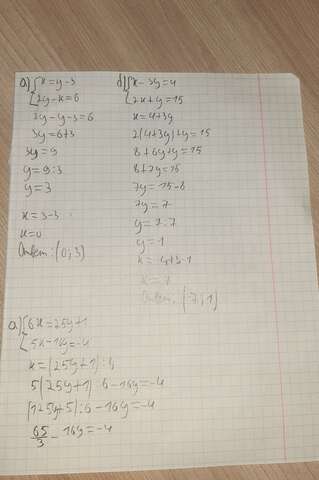 а) { x = y - 3
{ 2y - x = 6
2y - y - 3 = 6
3y = 6+3
3y = 9
y = 9:3
y = 3
x = 3-3
x = 0
Ответ: (0;3)
б) { x - 3y = 4
{ 2x + y = 15
x = 4+3y
2(4+3y)+y = 15
8+6y+y = 15
8+7y = 15
7y = 15-8
7y = 7
y = 7:7
y = 1
x = 4+3·1
x = 7
Ответ: (7;1)
а) { 6x = 25y+1
{ 5x - 16y = -4
x = (25y+1):6
5(25y+1):6 - 16y = -4
(125y+5):6 - 16y = -4
65/3 - 16y = -4